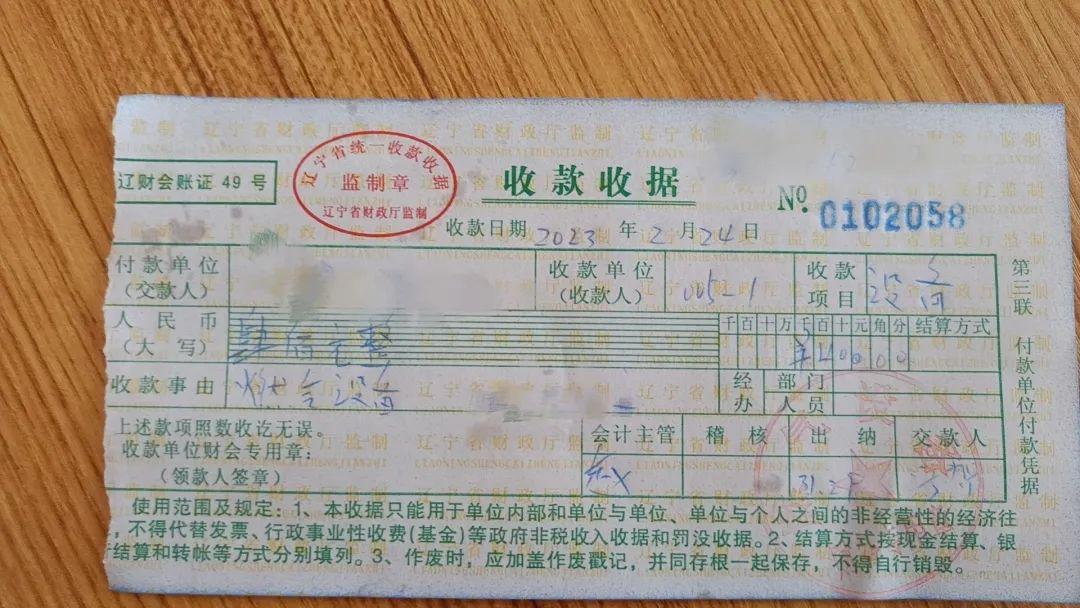 辽财会账证 49 号
辽宁省统一收款收据
监制章
辽宁省财政厅监制
收款收据
№ 0102058
收款日期 2023 年 2 月 24 日
付款单位
(交款人)
收款单位
(收款人)
005-1
收款
项目
设备
人民币
(大写)
肆佰元整
千百十万千百十元角分 结算方式
¥40000
收款事由
燃气设备
经办
部门
人员
上述款项照数收讫无误。
收款单位财会专用章:
(领款人签章)
会计主管 稽核 出纳 交款人
第三联 付款单位付款凭据
使用范围及规定:1、本收据只能用于单位内部和单位与单位、单位与个人之间的非经营性的经济往
,不得代替发票、行政事业性收费(基金)等政府非税收入收据和罚没收据。2、结算方式按现金结算、银
结算和转帐等方式分别填列。3、作废时,应加盖作废戳记,并同存根一起保存,不得自行销毁。